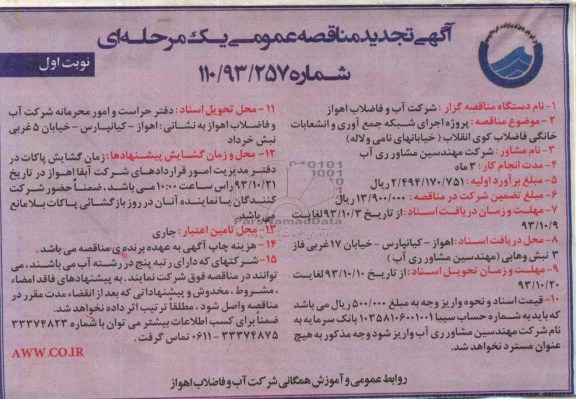 آگهی تجدید مناقصه عمومی یک مرحله‌ای
شماره ۱۱۰/۹۳/۲۵۷
نوبت اول
۱- نام دستگاه مناقصه گزار : شرکت آب و فاضلاب اهواز
۲- موضوع مناقصه : پروژه اجرای شبکه جمع آوری و انشعابات
خانگی فاضلاب کوی انقلاب ( خیابانهای نامی ولاله)
۳- نام مشاور : شرکت مهندسین مشاور ری آب
۴- مدت انجام کار : ۳ ماه
۵- مبلغ برآورد اولیه : ۲/۴۹۴/۱۷۰/۷۵۱ ریال
۶- مبلغ تضمین شرکت در مناقصه : ۱۳/۹۰۰/۰۰۰ ریال
۷- مهلت و زمان دریافت اسناد : از تاریخ ۹۳/۱۰/۳ لغایت
۹۳/۱۰/۹
۸- محل دریافت اسناد : اهواز - کیانپارس - خیابان ۱۷ غربی فاز
۳ نبش وهابی (مهندسین مشاور ری آب )
۹- مهلت و زمان تحویل اسناد : از تاریخ ۹۳/۱۰/۱۰ لغایت
۹۳/۱۰/۲۰
۱۰- قیمت اسناد و نحوه واریز وجه به مبلغ ۵۰۰/۰۰۰ ریال می باشد
که باید به شماره حساب سیبا ۱۰۳۵۸۱۰۶۰۰۱۰۰۱ بانک سرمایه به
نام شرکت مهندسین مشاور ری آب واریز شود وجه مذکور به هیچ
عنوان مسترد نخواهد شد.
۱۱- محل تحویل اسناد : دفتر حراست و امور محرمانه شرکت آب
و فاضلاب اهواز به نشانی : اهواز - کیانپارس - خیابان ۵ غربی
نبش خرداد
۱۲- محل و زمان گشایش پیشنهادها : زمان گشایش پاکات در
دفتر مدیریت امور قراردادهای شرکت آبفا اهواز در تاریخ
۹۳/۱۰/۲۱ راس ساعت ۱۰:۰۰ می باشد ، ضمناً حضور شرکت
کنندگان یا نماینده آنان در روز بازگشائی پاکات بلامانع
می باشد.
۱۳- محل تامین اعتبار : جاری
۱۴- هزینه چاپ آگهی به عهده برنده ی مناقصه می باشد.
۱۵- شرکتهای که دارای رتبه پنج در رشته آب می باشند ، می
توانند در مناقصه فوق شرکت نمایند . به پیشنهادهای فاقد امضاء
، مشروط ، مخدوش و پیشنهاداتی که بعد از انقضاء مدت مقرر در
مناقصه واصل شود ، مطلقا ترتیب اثر داده نخواهد شد.
ضمناً برای کسب اطلاعات بیشتر می توان با شماره ۳۳۳۷۴۸۲۳
۰۶۱۱-۳۳۳۷۴۸۷۵ تماس گرفت .
AWW.CO.IR
روابط عمومی و آموزش همگانی شرکت آب و فاضلاب اهواز
ParsNamadData